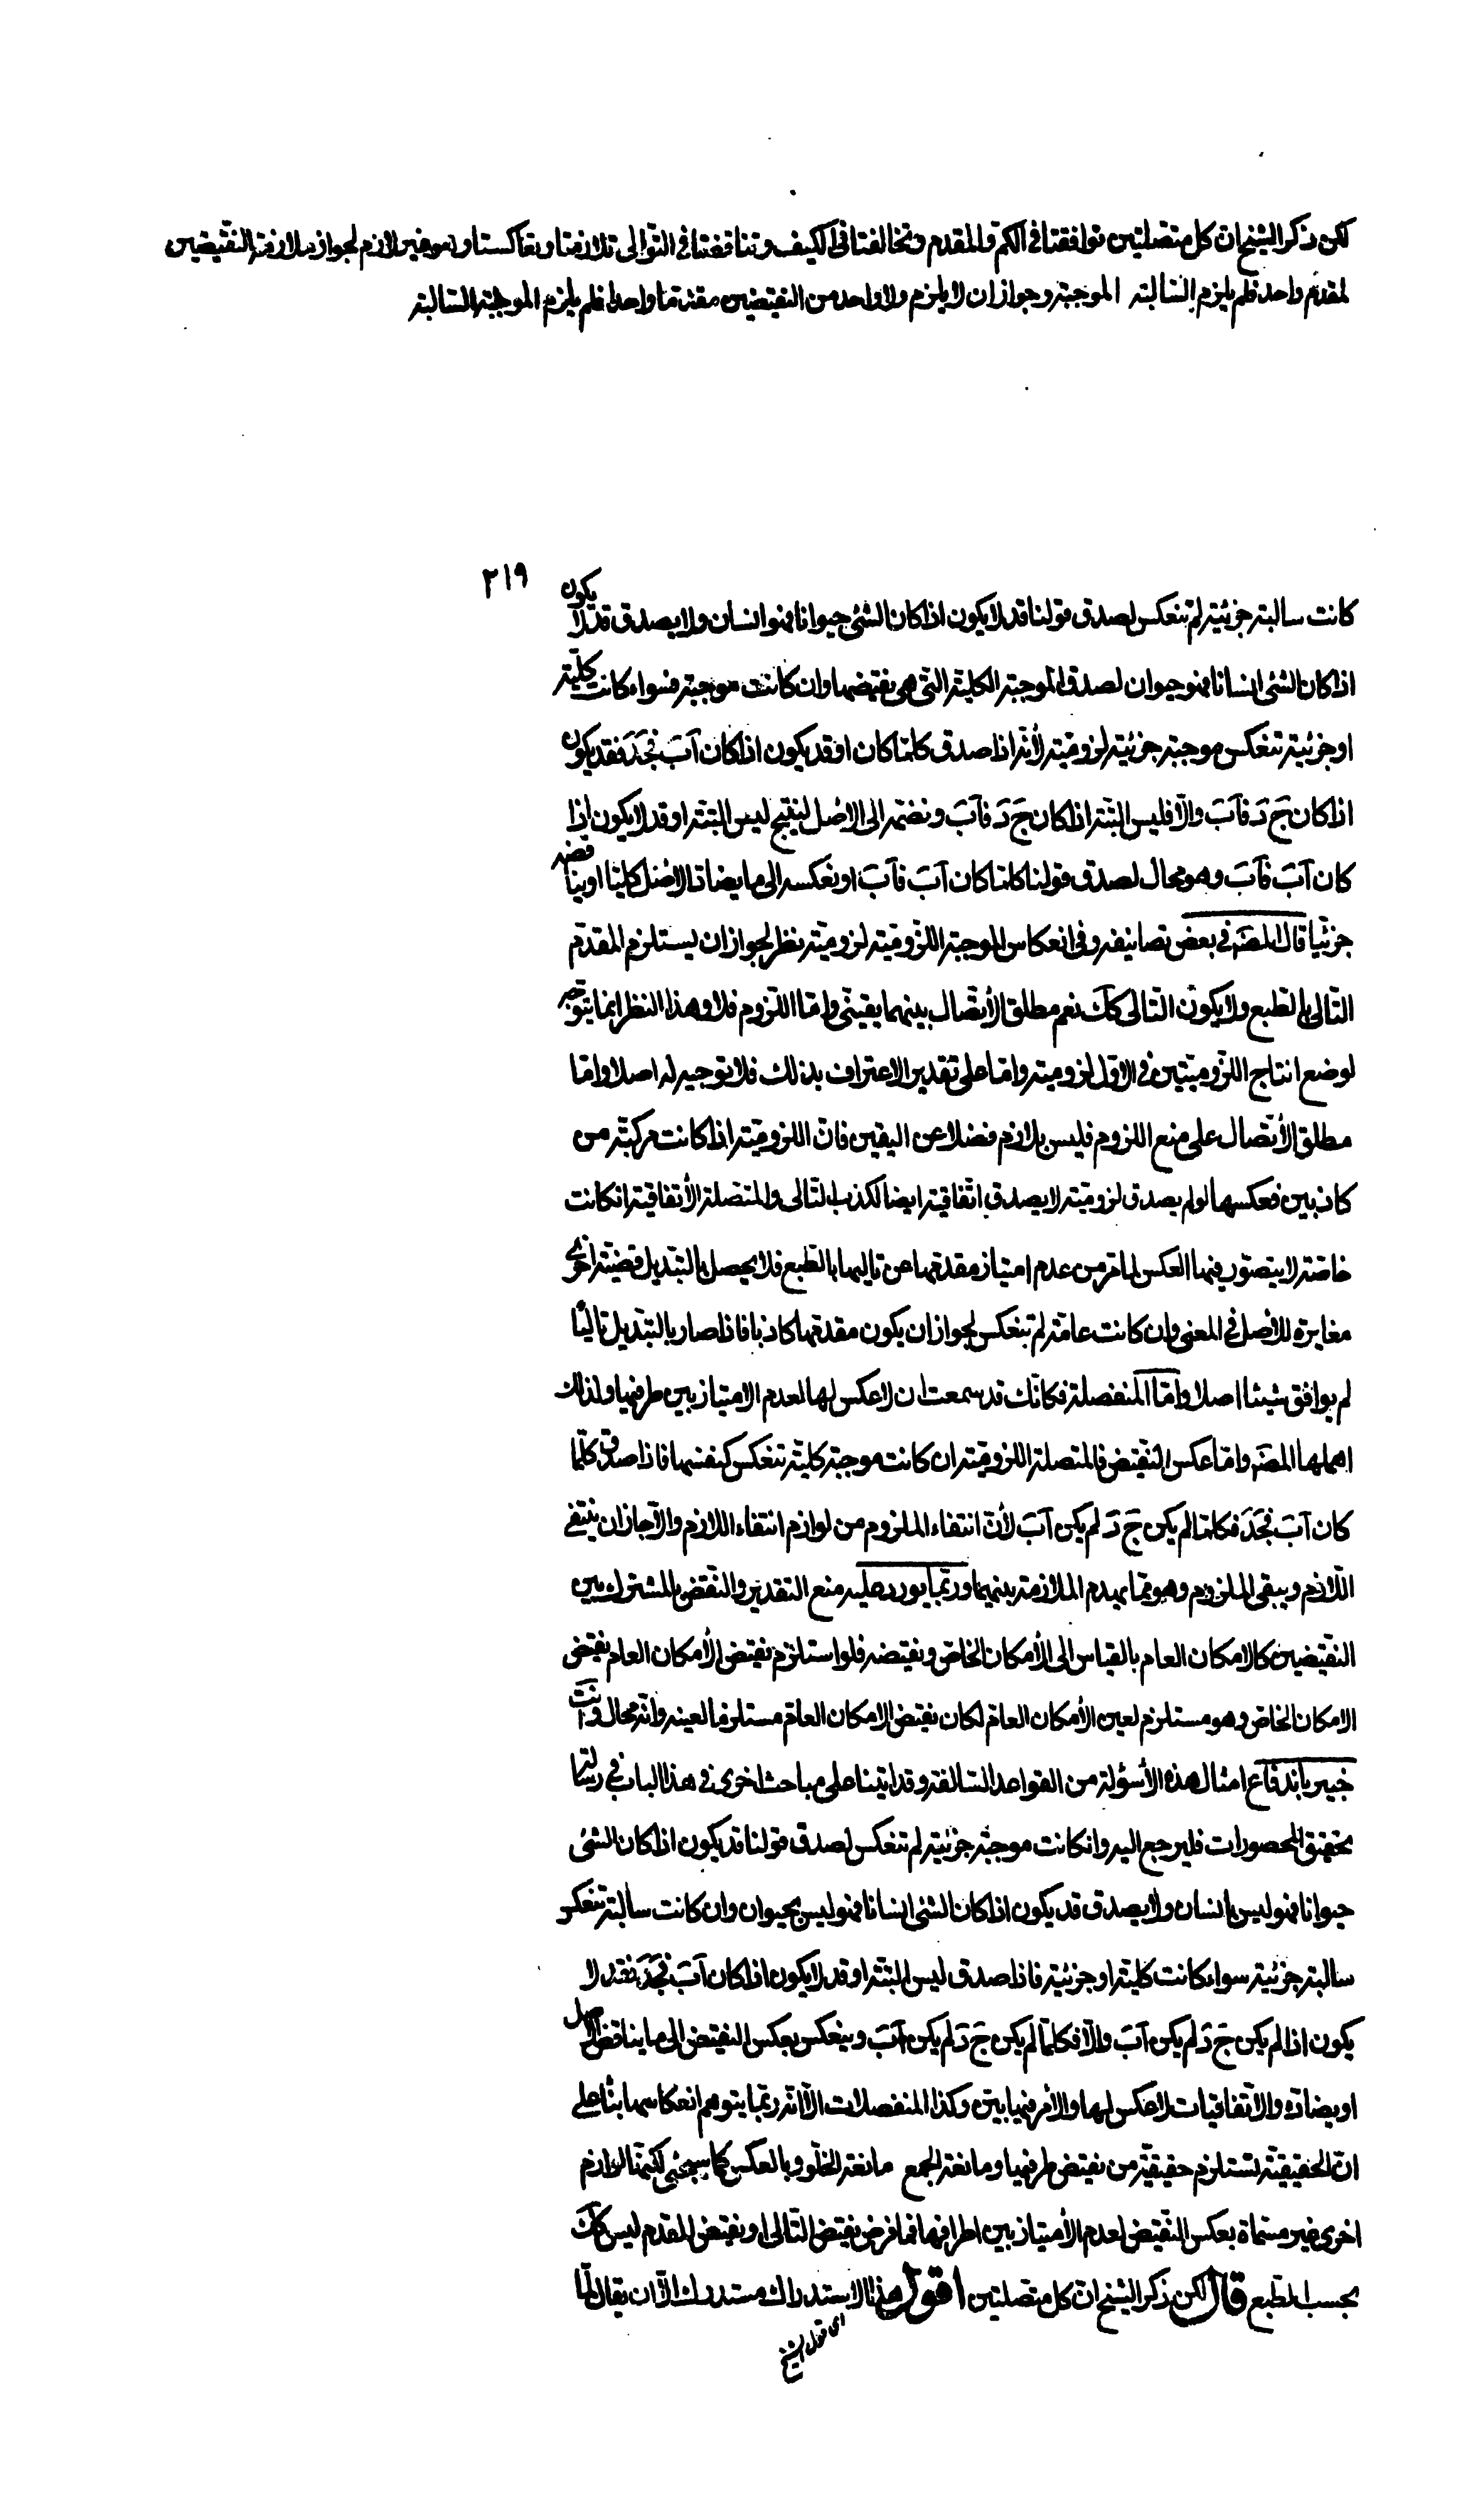 لكن ذكر الشيخ ان كل متصلتين توافقتا فى الكم والمقدم وتخالفتا فى الكيف وتناقضتا فى التوالى تلازمتا وتعاكستا وهو غير لازم لجواز ملازمة النقيضين
لمقدم واحد فلم يلزم السالبة الموجبة وجواز ان لا يلزم ولا واحد من النقيضين مقدما واحدا فلم يلزم الموجبة السالبة
٢١٩
كانت سالبة جزئية لم تنعكس لصدق قولنا قد لا يكون اذا كان الشئ حيوانا فهو انسان ولا يصدق قد لا يكون
اذا كان الشئ انسانا فهو حيوان لصدق الموجبة الكلية التى هى نقيضها وان كانت موجبة فسواء كانت كلية
او جزئية تنعكس موجبة جزئية لزومية لأنه اذا صدق كلما كان او قد يكون اذا كان آب فجد فقد يكون
اذا كان ج د فآب والا فليس البتة اذا كان ج د فآب ونضمه الى الاصل لينتج ليس البتة او قد لا يكون اذا
كان آب فآب وهو محال لصدق قولنا كلما كان آب فآب او نعكسه الى ما يضاد الاصل كليا او يناقضه
جزئيا قال المصَ فى بعض تصانيفه وفى انعكاس الموجبة اللزومية لزومية نظر لجواز ان يستلزم المقدم
التالى بالطبع ولا يكون التالى كك نعم مطلق الأتصال بينهما يقينى واما اللزوم فلا وهذا النظر انما يتوجه
لو ضع انتاج اللزوميتين فى الاول لزومية واما على تقدير الاعتراف بذلك فلا توجيه له اصلا واما
مطلق الأتصال على منع اللزوم فليس بلازم فضلا عن اليقين فان اللزومية اذا كانت مركبة من
كاذبين فعكسها لو لم يصدق لزومية لا يصدق اتفاقية ايضا لكذب التالى والمتصلة الأتفاقية انكانت
خاصة لا يتصور فيها العكس لما مر من عدم امتياز مقدمها عن تاليها بالطبع فلا يحصل بالتبديل قضية اخرى
مغايرة للأصل فى المعنى وان كانت عامة لم تنعكس لجواز ان يكون مقدمها كاذبا فاذا صار بالتبديل تاليا
لم يوافق شيئا اصلا واما المنفصلة فكانك قد سمعت ان لا عكس لها لعدم الامتياز بين طرفيها ولذلك
اهملها المصَ واما عكس النقيض فالمتصلة اللزومية ان كانت موجبة كلية تنعكس كنفسها فاذا صدق كلما
كان آب فجد فكلما لم يكن ج د لم يكن آب لأن انتفاء الملزوم من لوازم انتفاء اللازم والا جاز ان ينتفى
اللازم ويبقى الملزوم وهو مما يهدم الملازمة بينهما وربما يورد عليه منع التقدير والنقض بالمشترك بين
النقيضين كالامكان العام بالقياس الى الأمكان الخاص ونقيضه فلو استلزم نقيض الأمكان العام نقيض
الامكان الخاص وهو مستلزم لعين الأمكان العام لكان نقيض الامكان العام مستلزما لعينه وانه محال وانت
خبير باندفاع امثال هذه الأسؤلة من القواعد السالفة وقد اتينا على مباحث اخرى فى هذا الباب فى رسالة
تحقيق المحصورات فليرجع اليه وانكانت موجبة جزئية لم تنعكس لصدق قولنا قد يكون اذا كان الشئ
حيوانا فهو ليس بانسان ولا يصدق قد يكون اذا كان الشئ انسانا فهو ليس بحيوان وان كانت سالبة تنعكس
سالبة جزئية سواء كانت كلية او جزئية فاذا صدق ليس البتة او قد لا يكون اذا كان آب فجد فقد لا
يكون اذا لم يكن ج د لم يكن آب والا فكلما لم يكن ج د لم يكن آب وينعكس بعكس النقيض الى ما يناقض الاصل
او يضاده والاتفاقيات لا عكس لها والأمر فيها بين وكذا المنفصلات الا انه ربما يتوهم انعكاسها بناء على
ان الحقيقية تستلزم حقيقية من نقيض طرفيها ومانعة الجمع مانعة الخلو وبالعكس كما سيجئ لكنها لوازم
اخرى غير مسماة بعكس النقيض لعدم الأمتياز بين اطرافها فما فرض نقيض التالى او نقيض المقدم ليس كك
بحسب الطبع قال لكن ذكر الشيخ ان كل متصلتين اقول هذا الاستدراك مستدرك الا ان يقال لما
اى قول الشيخ